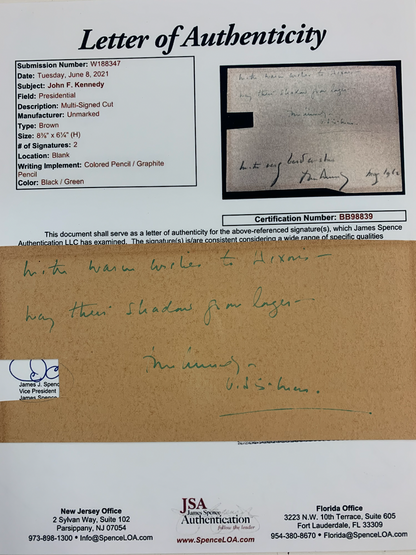 Letter of Authenticity
Submission Number: W188347
Date: Tuesday, June 8, 2021
Subject: John F. Kennedy
Field: Presidential
Description: Multi-Signed Cut
Manufacturer: Unmarked
Type: Brown
Size: 8⅜" x 6¼" (H)
# of Signatures: 2
Location: Blank
Writing Implement: Colored Pencil / Graphite
Pencil
Color: Black / Green
with warm wishes to
may their shadows grow larger
with very best wishes
Certification Number: BB98839
This document shall serve as a letter of authenticity for the above-referenced signature(s), which James Spence
Authentication LLC has examined. The signature(s) is/are consistent considering a wide range of specific qualities
With warm wishes to
may their shadows grow larger—
James J. Spenc
Vice President
James Spence
New Jersey Office
2 Sylvan Way, Suite 102
Parsippany, NJ 07054
973-898-1300 • Info@SpenceLOA.com
JSA
James Spence
Authentication
follow the leader
www.SpenceLOA.com
Florida Office
3223 N.W. 10th Terrace, Suite 605
Fort Lauderdale, FL 33309
954-380-8670 • Florida@SpenceLOA.com